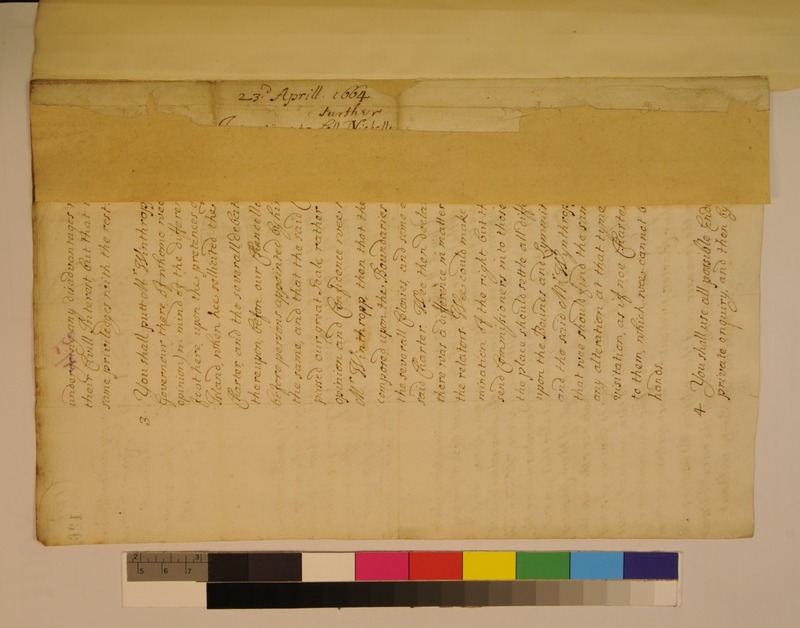 23d Aprill. 1664
further
under any disadvantages
their Civill Interest, but that
same priviledges with the rest.
3 You shall putt Mr Winthropp
Governour there (of whome wee
opinion) in mind of the differen
fest here, upon the pretences
Island when hee sollicited the
Charter and the severall debat
thereupon before our Chancello
before persons appointed by hi
the same, and that the said
passed our great Seale, rather
opinion and Confidence wee
Mr Winthropp, then that the
composed upon the Boundaries
the severall Colonies, and some
said Charter. Wee then decla
there was difference in matter
the relators Wee could make
mination of the right, but th
send Commissioners into those
the place should settle all diff
upon the Bounds and Lymmitt
and the said Mr Wynthrop
that wee should find the sam
any alteration at that tyme
visitation, as if noe Charter
to them, which wee cannot b
hands.
4 You shall use all possible Ende
private enquiry, and then by